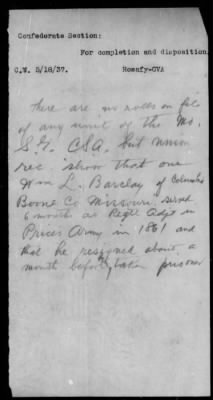 Confederate Section:
For completion and disposition.
C.W. 5/18/37. Rosafy-CVA
There are no rolls on file
of any unit of the Mo.
S.G. CSA. but union
rec. show that one
Wm L. Barclay of Columbia
Boone Co Missouri served
6 months as Regtl Adjt in
Prices Army in 1861 and
that he resigned about a
month before taken prisoner